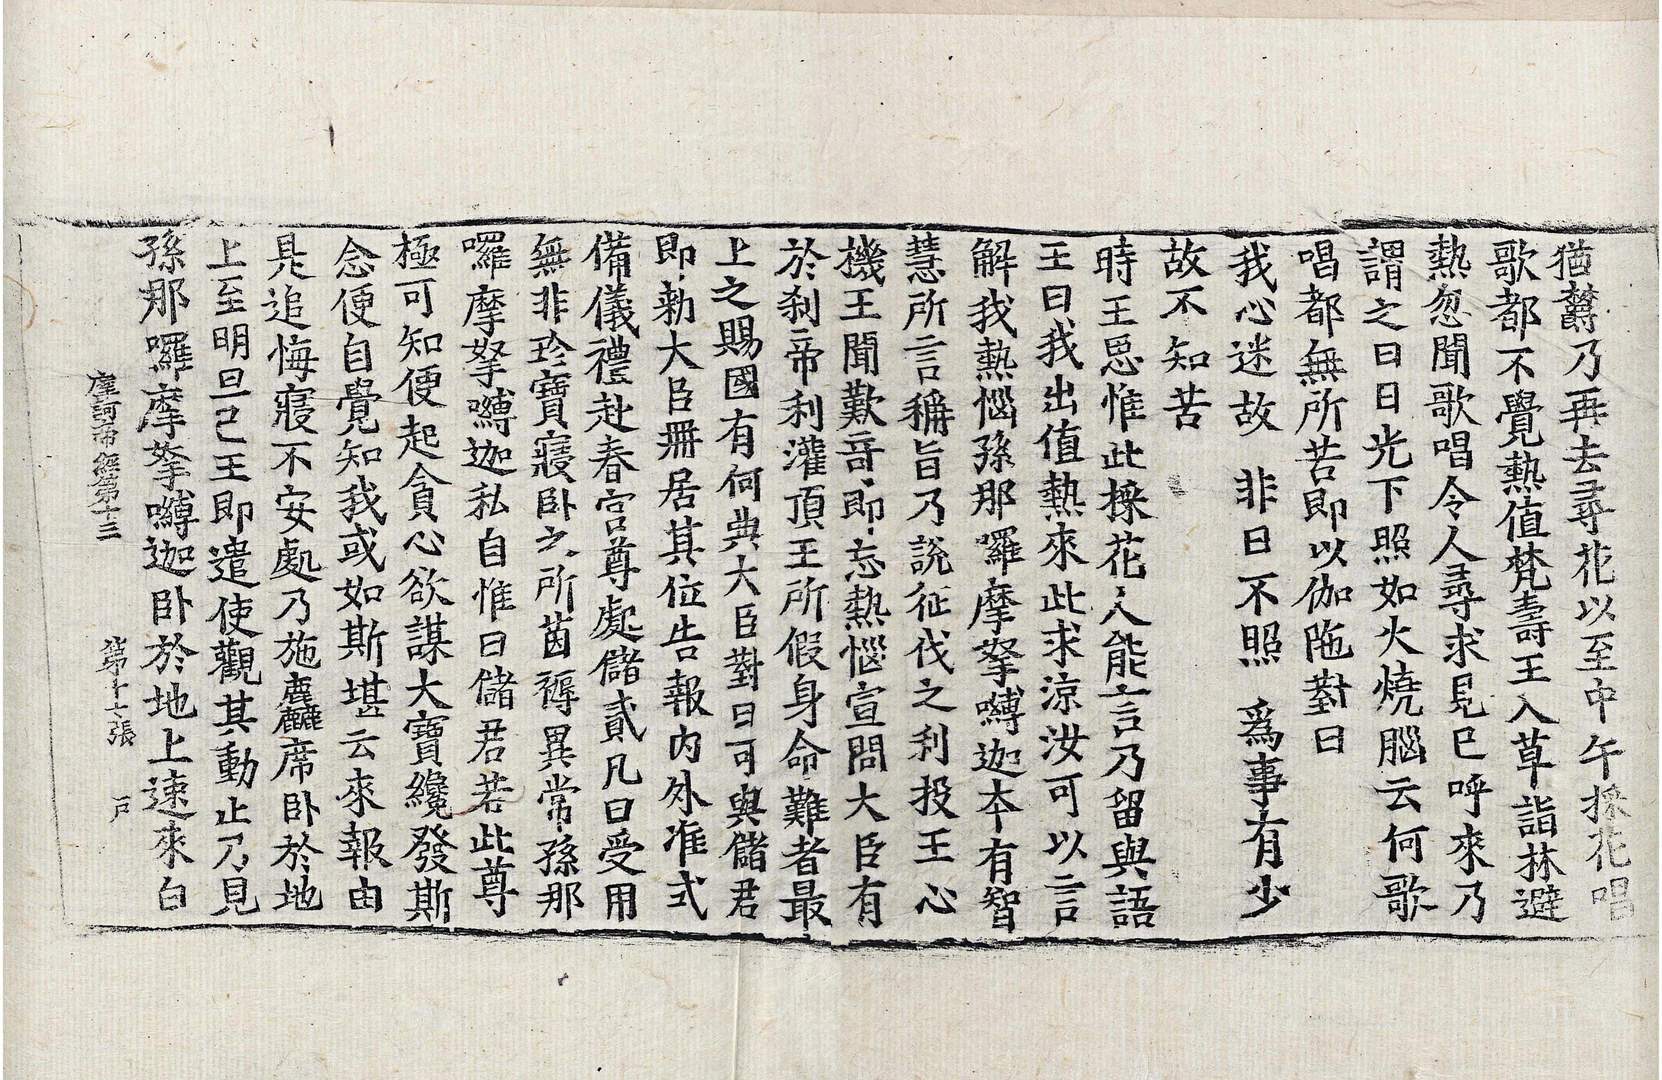 猶欝乃再去尋花以至中午採花唱
歌都不覺熱值梵壽王入草詣林避
熱忽聞歌唱令人尋求見已呼來乃
謂之曰日光下照如火燒腦云何歌
唱都無所苦即以伽陁對曰
我心迷故　非日不照　爲事有少
故不知苦
時王思惟此採花人能言乃留與語
王曰我出值熱來此求涼汝可以言
解我熱惱孫那囉摩拏嚩迦本有智
慧所言稱旨乃說征伐之利投王心
機王聞歎奇即忘熱惱宣問大臣有
於剎帝利灌頂王所假身命難者最
上之賜國有何典大臣對曰可與儲君
即勑大臣冊居其位告報內外准式
備儀禮赴春宮尊處儲貳凡曰受用
無非珍寶寢卧之所茵褥異常孫那
囉摩拏嚩迦私自惟曰儲君若此尊
極可知便起貪心欲謀大寶纔發斯
念便自覺知我或如斯堪云來報由
是追悔寢不安處乃施麁麤席卧於地
上至明旦已王即遣使觀其動止乃見
孫那囉摩拏嚩迦卧於地上速來白
摩訶帝經第十三　第十七張　戶